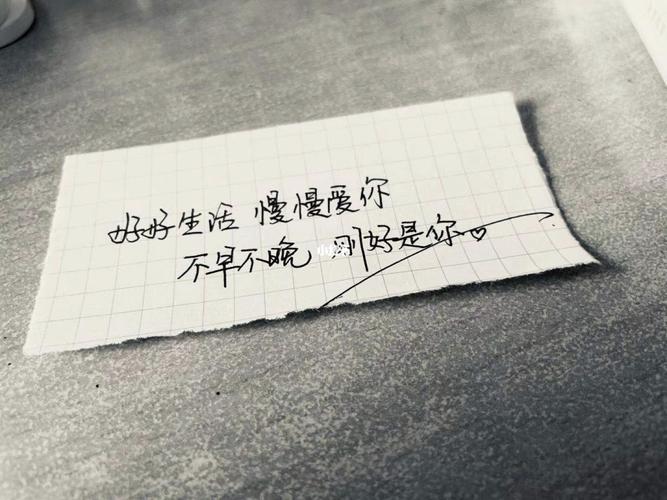 好好生活 慢慢爱你
不早不晚 刚好是你♡